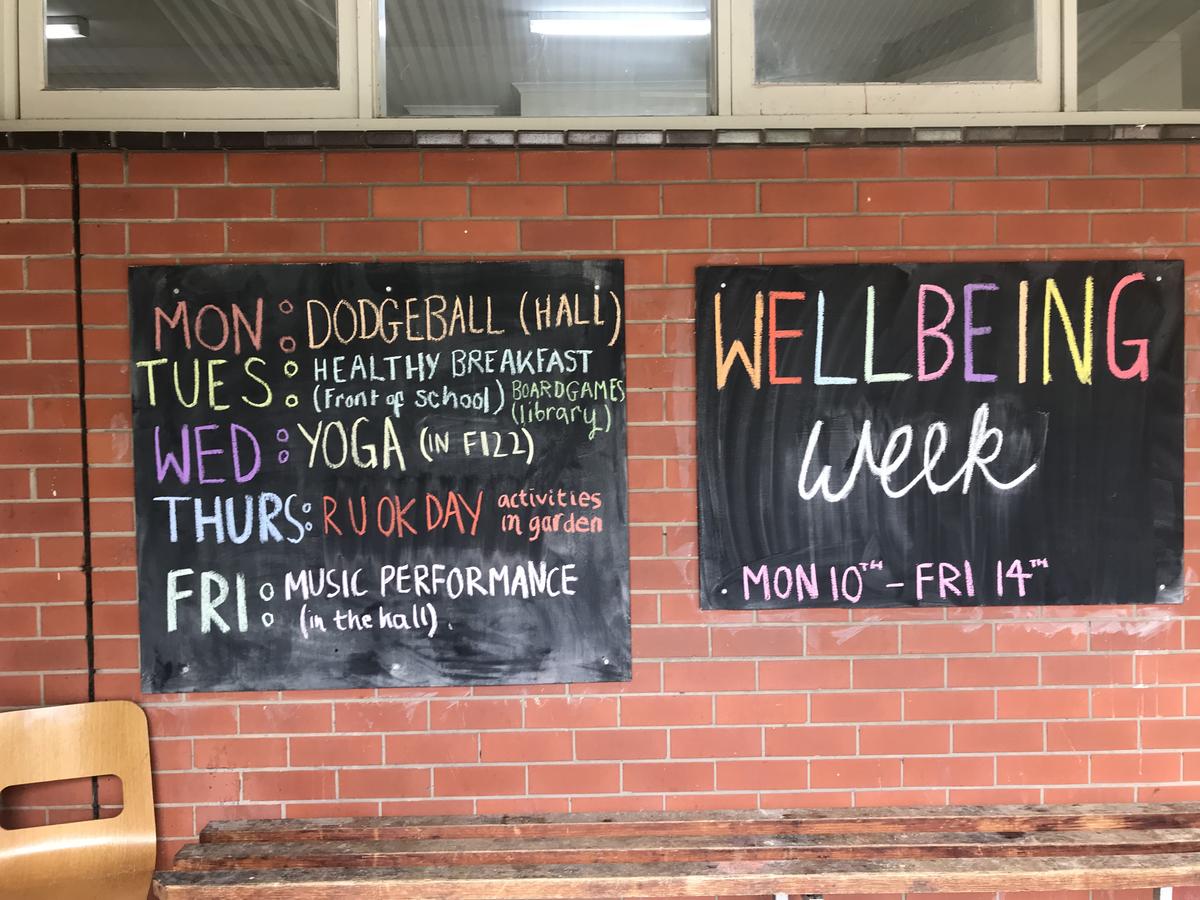 MON: DODGEBALL (HALL)
TUES: HEALTHY BREAKFAST
(Front of School) BOARDGAMES
(library)
WED: YOGA (IN F122)
THURS: R U OK DAY activities
in garden
FRI: MUSIC PERFORMANCE
(in the hall).
WELLBEING
week
MON 10TH - FRI 14TH